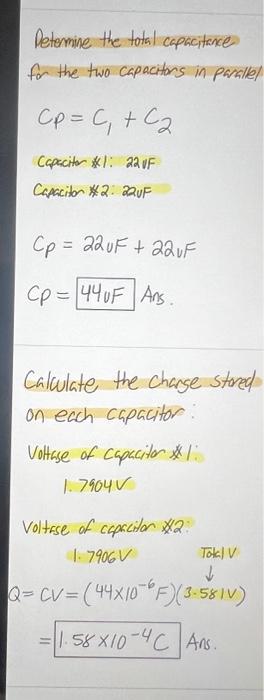 Determine the total capacitance
for the two capacitors in parallel
Cp = C₁ + C₂
Capacitor #1: 22uF
Capacitor #2: 22uF
Cp = 22uF + 22uF
Cp = 44uF Ans.
Calculate the charge stored
on each capacitor:
Voltage of Capacitor #1:
1.7904V
Voltage of capacitor #2:
1.7906V Total V
↓
Q = CV = (44x10⁻⁶F)(3.581V)
= 1.58 x10⁻⁴C Ans.